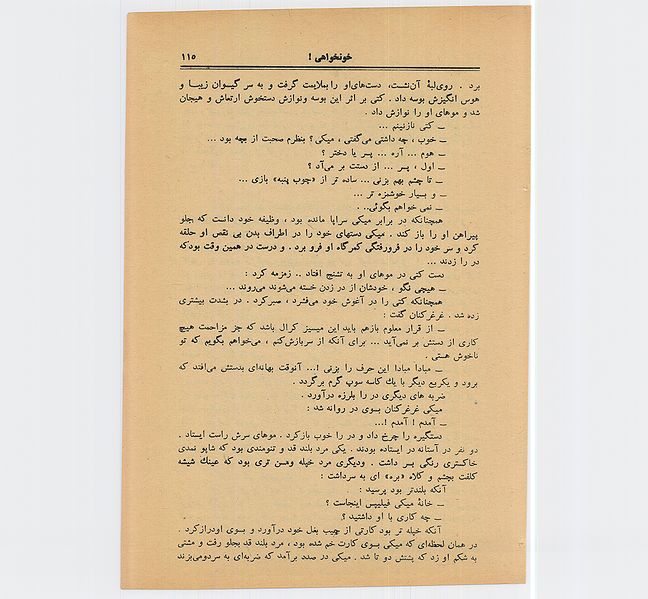 خونخواهی !
۱۱۵
برد . روی لبهٔ آن نشست، دست‌های او را بملایمت گرفت و به سر گیسوان زیبا و
هوس انگیزش بوسه داد . کتی بر اثر این بوسه ونوازش دستخوش ارتعاش و هیجان
شد و موهای او را نوازش داد .
ــ کتی نازنینم ...
ــ خوب ، چه داشتی می‌گفتی ، میکی ؟ بنظرم صحبت از بچه بود ...
ــ هوم ... آره ... پسر یا دختر ؟
ــ اول ، پسر ... از دستت بر می‌آد ؟
ــ تا چشم بهم بزنی ... ساده تر از «چوب پنبه» بازی ...
ــ و بسیار خوشمزه تر ...
ــ نمی خواهم بگوئی...
همچنانکه در برابر میکی سراپا مانده بود ، وظیفه خود دانست که جلو
پیراهن او را باز کند . میکی دستهای خود را در اطراف بدن بی نقص او حلقه
کرد و سر خود را در فرورفتگی کمرگاه او فرو برد . و درست در همین وقت بودکه
در را زدند ...
دست کتی در موهای او به تشنج افتاد .. زمزمه کرد :
ــ هیچی نگو ، خودشان از در زدن خسته می‌شوند می‌روند ...
همچنانکه کتی را در آغوش خود می‌فشرد ، صبرکرد . در بشدت بیشتری
زده شد . غرغرکنان گفت :
ــ از قرار معلوم بازهم باید این میسیز کرال باشد که جز مزاحمت هیچ
کاری از دستش بر نمی‌آید ... برای آنکه از سربازش‌کنم ، می‌خواهم بگویم که تو
ناخوش هستی .
ــ مبادا مبادا این حرف را بزنی !... آنوقت بهانه‌ای بدستش می‌افتد که
برود و یکربع دیگر با یك کاسه سوپ گرم برگردد .
ضربه های دیگری در را بلرزه درآورد .
میکی غرغرکنان بسوی در روانه شد :
ــ آمدم ! آمدم !...
دستگیره را چرخ داد و در را خوب بازکرد . موهای سرش راست ایستاد .
دو نفر در آستانه در ایستاده بودند . یکی مرد بلند قد و تنومندی بود که شاپو نمدی
خاکستری رنگی بسر داشت . ودیگری مرد خپله ومسن تری بود که عینك شیشه
کلفت بچشم و کلاه «بره» ای به سرداشت :
آنکه بلندتر بود پرسید :
ــ خانهٔ میکی فیلیپس اینجاست ؟
ــ چه کاری با او داشتید ؟
آنکه خپله تر بود کارتی از جیب بغل خود درآورد و بسوی اودرازکرد .
در همان لحظه‌ای که میکی بسوی کارت خم شده بود ، مرد بلند قد بجلو رفت و مشتی
به شکم او زد که پشتش دو تا شد . میکی در صدد برآمد که ضربه‌ای به سردومی‌بزند